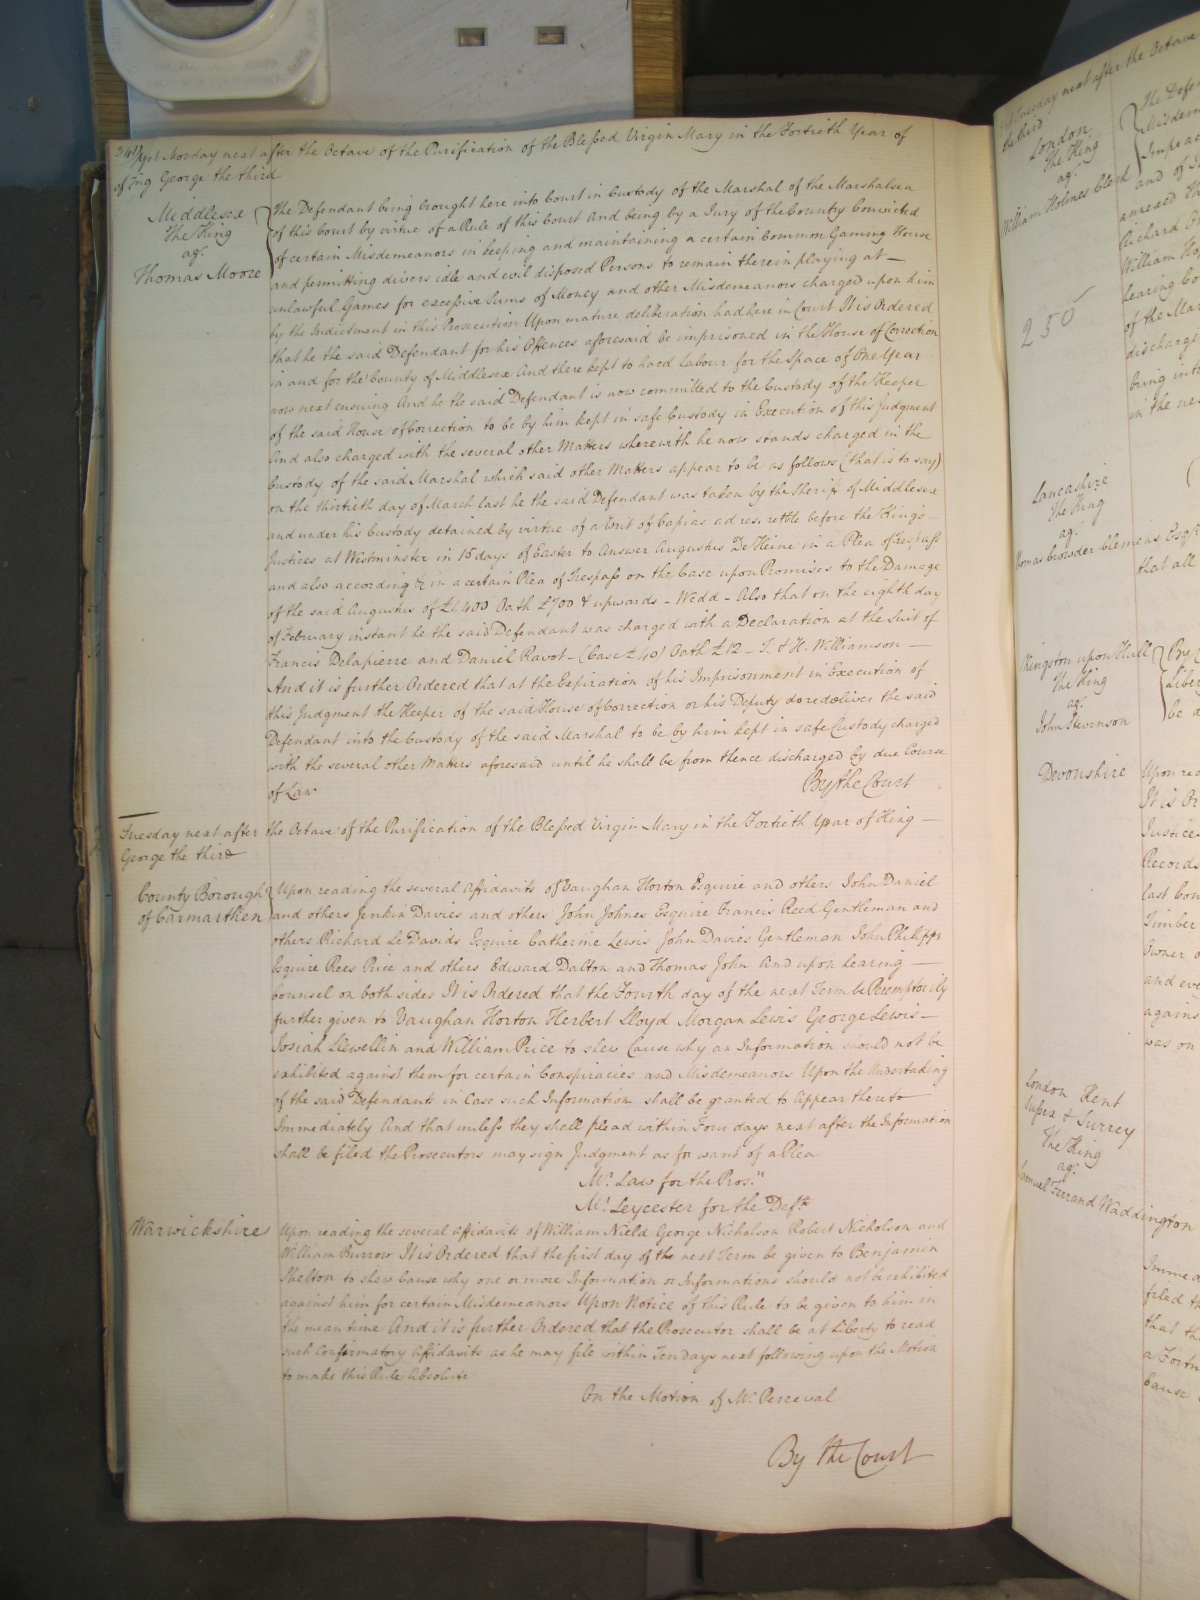 Monday next after the Octave of the Purification of the Blessed Virgin Mary in the Fortieth Year of
George the third
Middlesex
The King
agt
Thomas Moore
The Defendant being brought here into Court in Custody of the Marshal of the Marshalsea
of this Court by virtue of a Rule of this Court And being by a Jury of the Country Convicted
of certain Misdemeanors in keeping and maintaining a certain Common Gaming House
and permitting divers idle and evil disposed Persons to remain therein playing at
unlawful Games for excessive Sums of Money and other Misdemeanors charged upon him
by the Indictment in this Prosecution Upon mature deliberation had here in Court It is Ordered
that he the said Defendant for his Offences aforesaid be imprisoned in the House of Correction
in and for the County of Middlesex And there kept to hard Labour for the Space of One Year
now next ensuing And he the said Defendant is now committed to the Custody of the Keeper
of the said House of Correction to be by him kept in safe Custody in Execution of this Judgment
And also charged with the several other Matters wherewith he now stands charged in the
Custody of the said Marshal which said other Matters appear to be as follows (that is to say)
on the thirtieth day of March last he the said Defendant was taken by the Sheriff of Middlesex
and under his Custody detained by virtue of a Writ of Capias ad res. retble before the King's
Justices at Westminster in 15 days of Easter to Answer Augustus De Heine in a Plea of Trespass
and also according &c in a certain Plea of Trespass on the Case upon Promises to the Damage
of the said Augustus of £1400 Oath £700 & upwards - Wedd - Also that on the eighth day
of February instant he the said Defendant was charged with a Declaration at the Suit of
Francis Delapierre and Daniel Ravot - (Case £40) Oath £12 - T. & H. Williamson -
And it is further Ordered that at the Expiration of his Imprisonment in Execution of
this Judgment the Keeper of the said House of Correction or his Deputy do redeliver the said
Defendant into the Custody of the said Marshal to be by him kept in safe Custody charged
with the several other Matters aforesaid until he shall be from thence discharged by due Course
of Law
By the Court
Tuesday next after the Octave of the Purification of the Blessed Virgin Mary in the Fortieth Year of King
George the third
County Borough
of Carmarthen
Upon reading the several Affidavits of Vaughan Horton Esquire and others John Daniel
and others Jenkin Davies and others John Johnes Esquire Francis Reed Gentleman and
others Richard Le Davids Esquire Catherine Lewis John Davies Gentleman John Philipps
Esquire Rees Price and others Edward Dalton and Thomas John And upon hearing
Counsel on both sides It is Ordered that the Fourth day of the next Term be Peremptorily
further given to Vaughan Horton Herbert Lloyd Morgan Lewis George Lewis
Josiah Llewellin and William Price to shew Cause why an Information should not be
exhibited against them for certain Conspiracies and Misdemeanors Upon the Undertading
of the said Defendants in Case such Information shall be granted to Appear thereto
Immediately And that unless they shall plead within Four days next after the Information
shall be filed the Prosecutors may sign Judgment as for want of a Plea
Mr. Law for the Prosrs
Mr. Leycester for the Defts
Warwickshire
Upon reading the several Affidavits of William Nield George Nicholson Robert Nicholson and
William Burrow It is Ordered that the first day of the next Term be given to Benjamin
Shelton to shew Cause why one or more Information or Informations should not be exhibited
against him for certain Misdemeanors Upon Notice of this Rule to be given to him in
the mean time And it is further Ordered that the Prosecutor shall be at Liberty to read
such Confirmatory Affidavits as he may file within Ten days next following upon the Motion
to make this Rule Absolute
On the Motion of Mr. Perceval
By the Court
Tuesday next after the Octave
the third
London
The King
agt
William Holmes Clerk
The Defen
Misdem
Impea
and of
annexed
Richard
William
hearing
of the Mar
discharge
being into
in the ne
250
Lancashire
The King
agt
Thomas Crowder Clemens Esqr
that all
Kingston upon Hull
The King
agt
John Stevenson
By
Liber
be d
Devonshire
Upon rea
It is Or
Justice
Records
last
Timber
Owner o
and eve
agains
was on
London Kent
Sussex & Surrey
The King
agt
Samuel Ferrand Waddington
Immed
filed th
that th
a Fortn
Cause